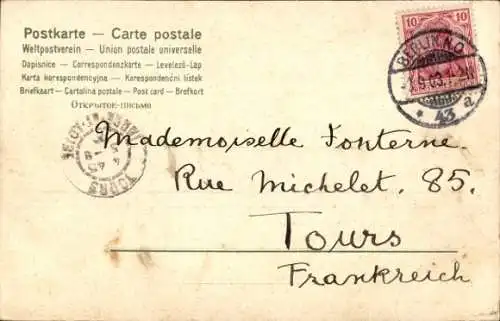 Postkarte — Carte postale
Weltpostverein — Union postale universelle
Dopisnice — Correspondenzkarte — Levelező-Lap
Karta korespondencyjna — Korespondenční lístek
Briefkaart — Cartolina postale — Post card — Brefkort
Открытое-письмо
10 10
BERLIN N.O.
9.03.
* 43 a.
TOURS
Mademoiselle Fonterne.
Rue Michelet, 85.
Tours
Frankreich